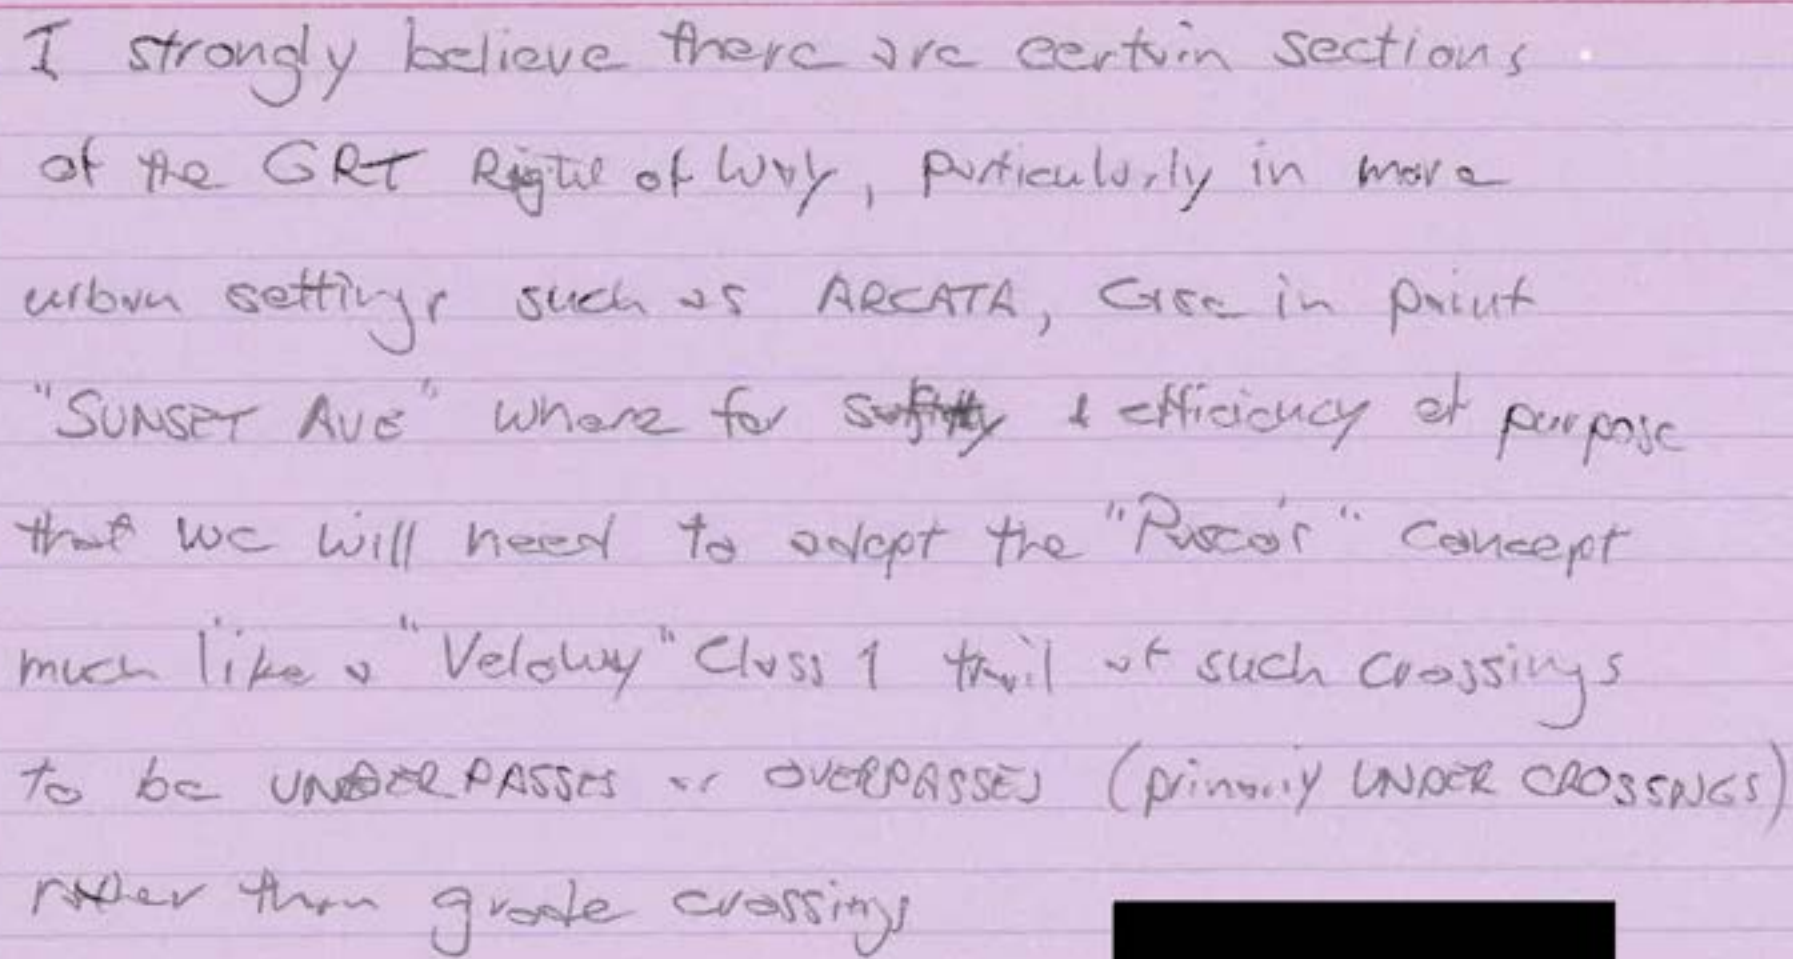 I strongly believe there are certain sections
of the GRT Right of Way, particularly in more
urban settings such as ARCATA, Case in point
"SUNSET AVE" where for safety & efficiency of purpose
that we will need to adopt the " " concept
much like a "Veloway" Class 1 trail at such crossings
to be UNDERPASSES or OVERPASSES (primarily UNDER CROSSINGS)
rather than grade crossings